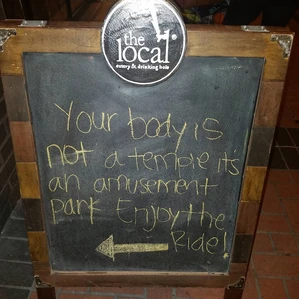 the
local
eatery & drinking hole
Your body is
not a temple it's
an amusement
park Enjoy the
Ride!